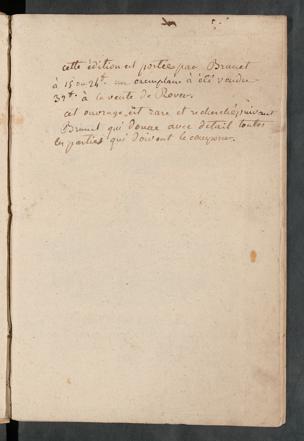 cette édition est portée par Brunet
à 15 ou 24# un exemplaire a été vendu
39# à la vente de Rover.
cet ouvrage est rare et recherché, suivant
Brunet qui donne avec détail toutes
les parties qui doivent le composer.